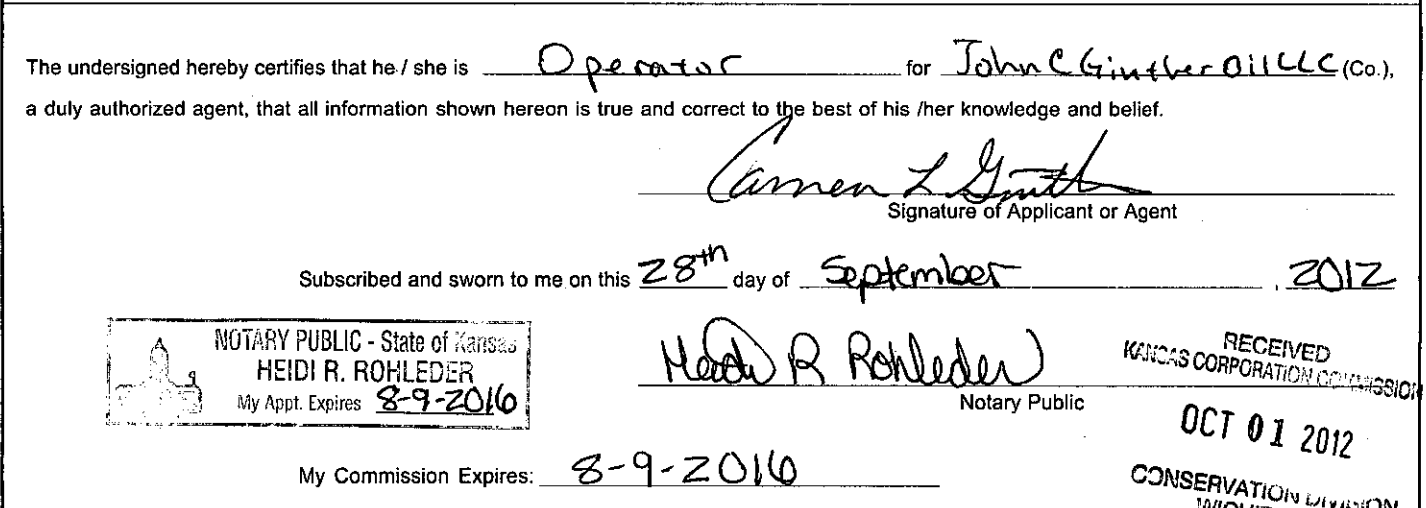 The undersigned hereby certifies that he / she is Operator for John C Ginther Oil LLC (Co.),
a duly authorized agent, that all information shown hereon is true and correct to the best of his /her knowledge and belief.
Carmen L Ginther
Signature of Applicant or Agent
Subscribed and sworn to me on this 28th day of September, 2012
NOTARY PUBLIC - State of Kansas
HEIDI R. ROHLEDER
My Appt. Expires 8-9-2016
Heidi R Rohleder
Notary Public
My Commission Expires: 8-9-2016
RECEIVED
KANSAS CORPORATION COMMISSION
OCT 01 2012
CONSERVATION DIVISION